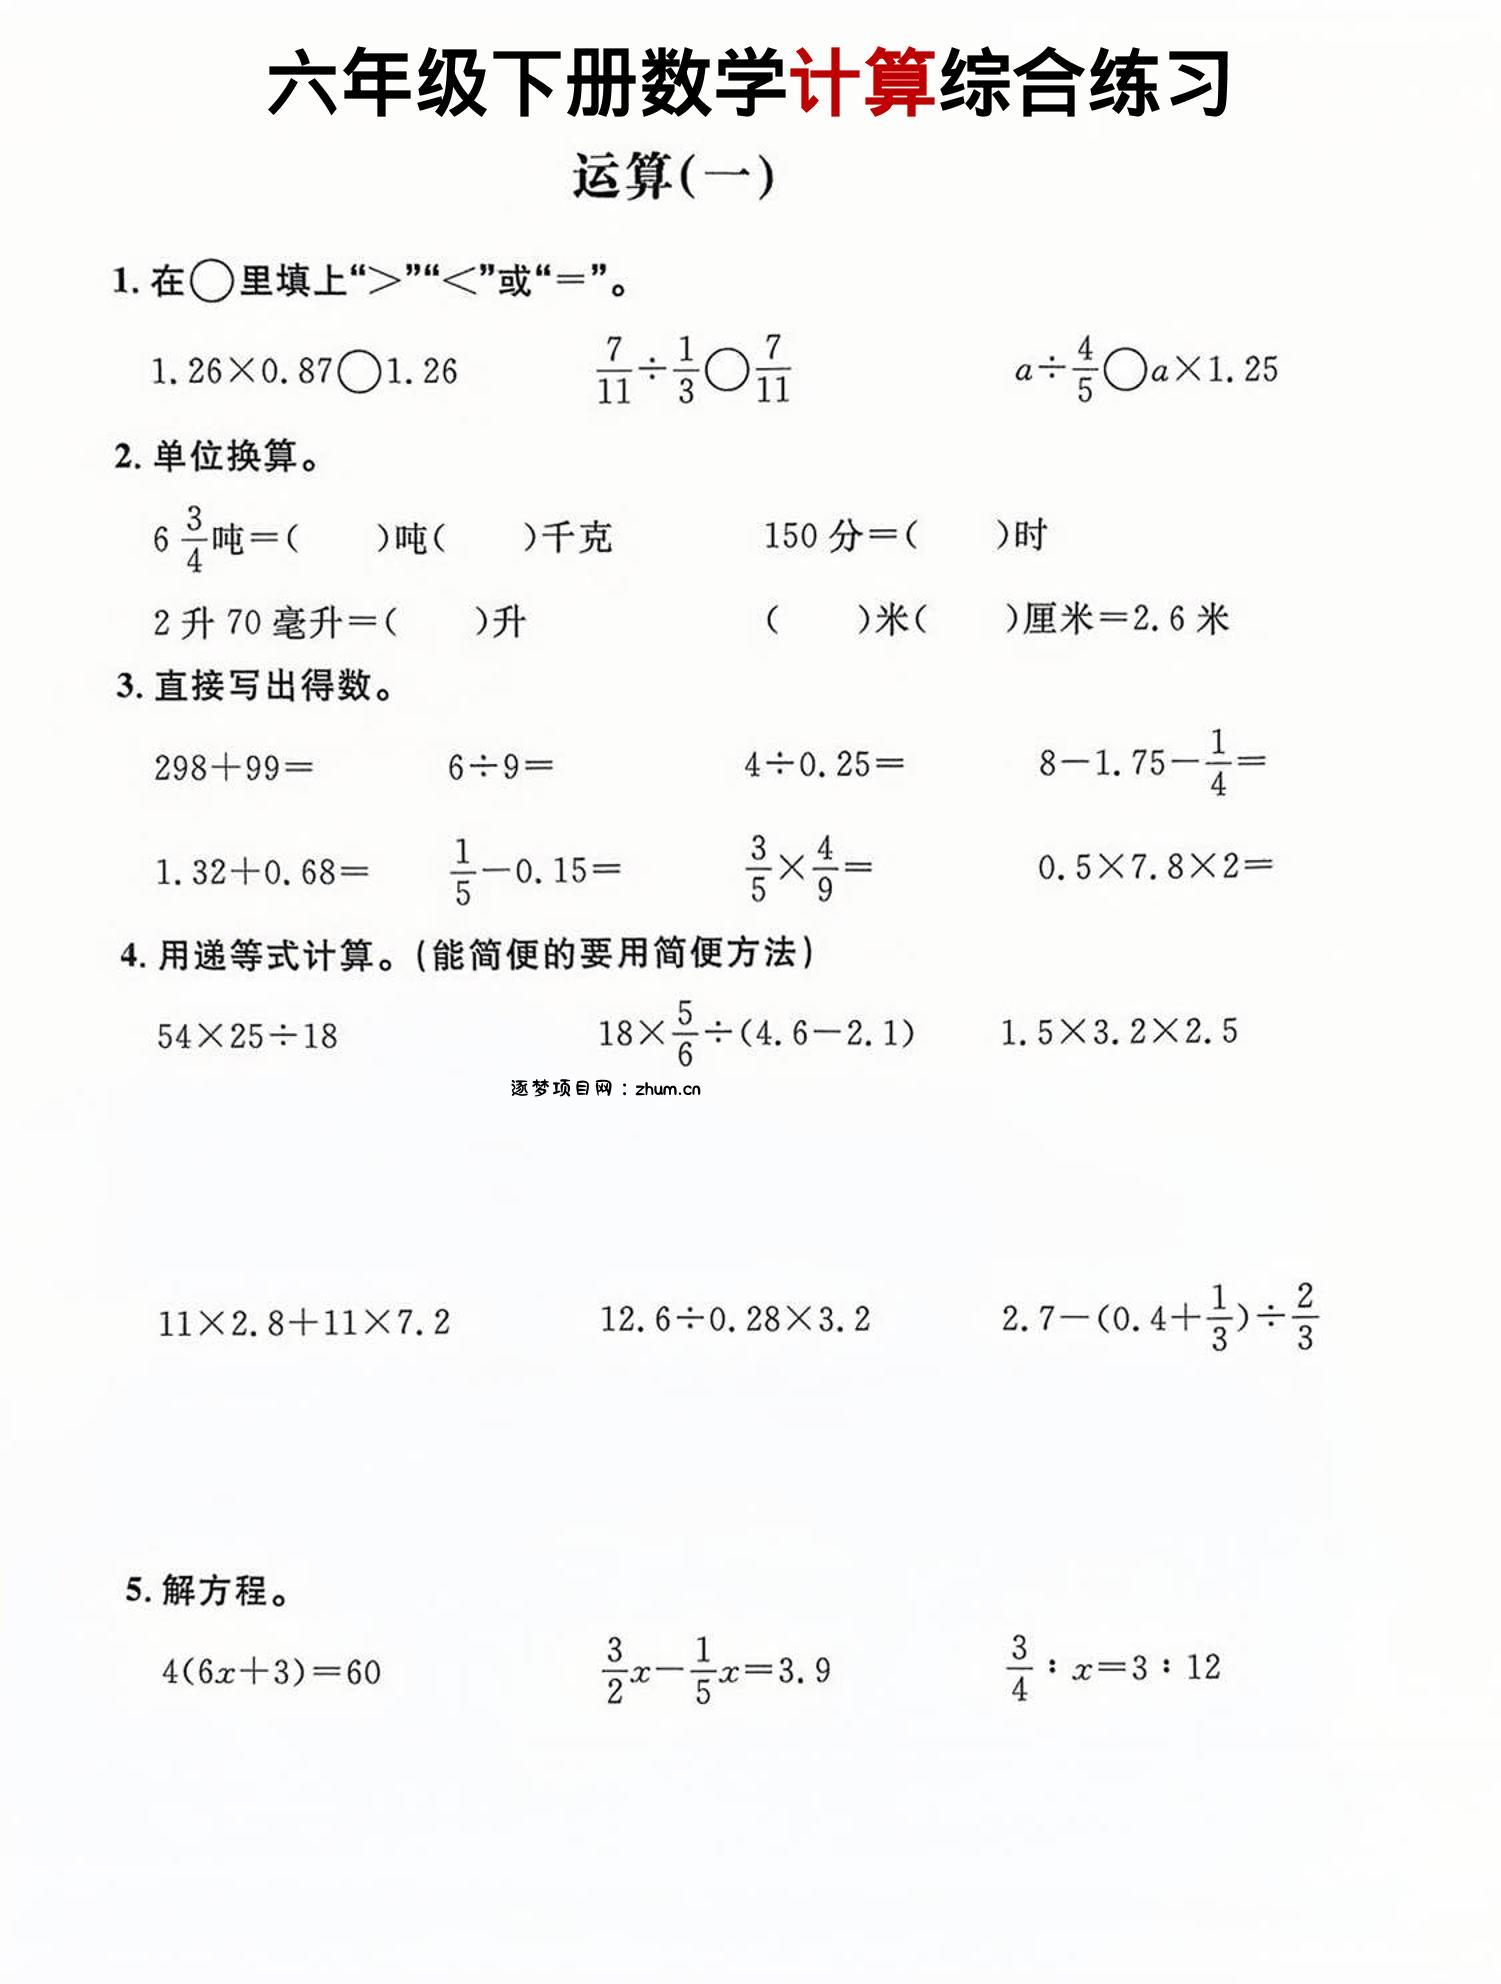 六年级下册数学计算综合练习
运算(一)
1. 在○里填上“>”“<”或“=”。
1.26×0.87○1.26 7/11÷1/3○7/11 a÷4/5○a×1.25
2. 单位换算。
6 3/4吨=( )吨( )千克 150 分=( )时
2 升 70 毫升=( )升 ( )米( )厘米=2.6 米
3. 直接写出得数。
298+99= 6÷9= 4÷0.25= 8-1.75-1/4=
1.32+0.68= 1/5-0.15= 3/5×4/9= 0.5×7.8×2=
4. 用递等式计算。(能简便的要用简便方法)
54×25÷18 18×5/6÷(4.6-2.1) 1.5×3.2×2.5
逐梦项目网：zhum.cn
11×2.8+11×7.2 12.6÷0.28×3.2 2.7-(0.4+1/3)÷2/3
5. 解方程。
4(6x+3)=60 3/2x-1/5x=3.9 3/4：x=3：12